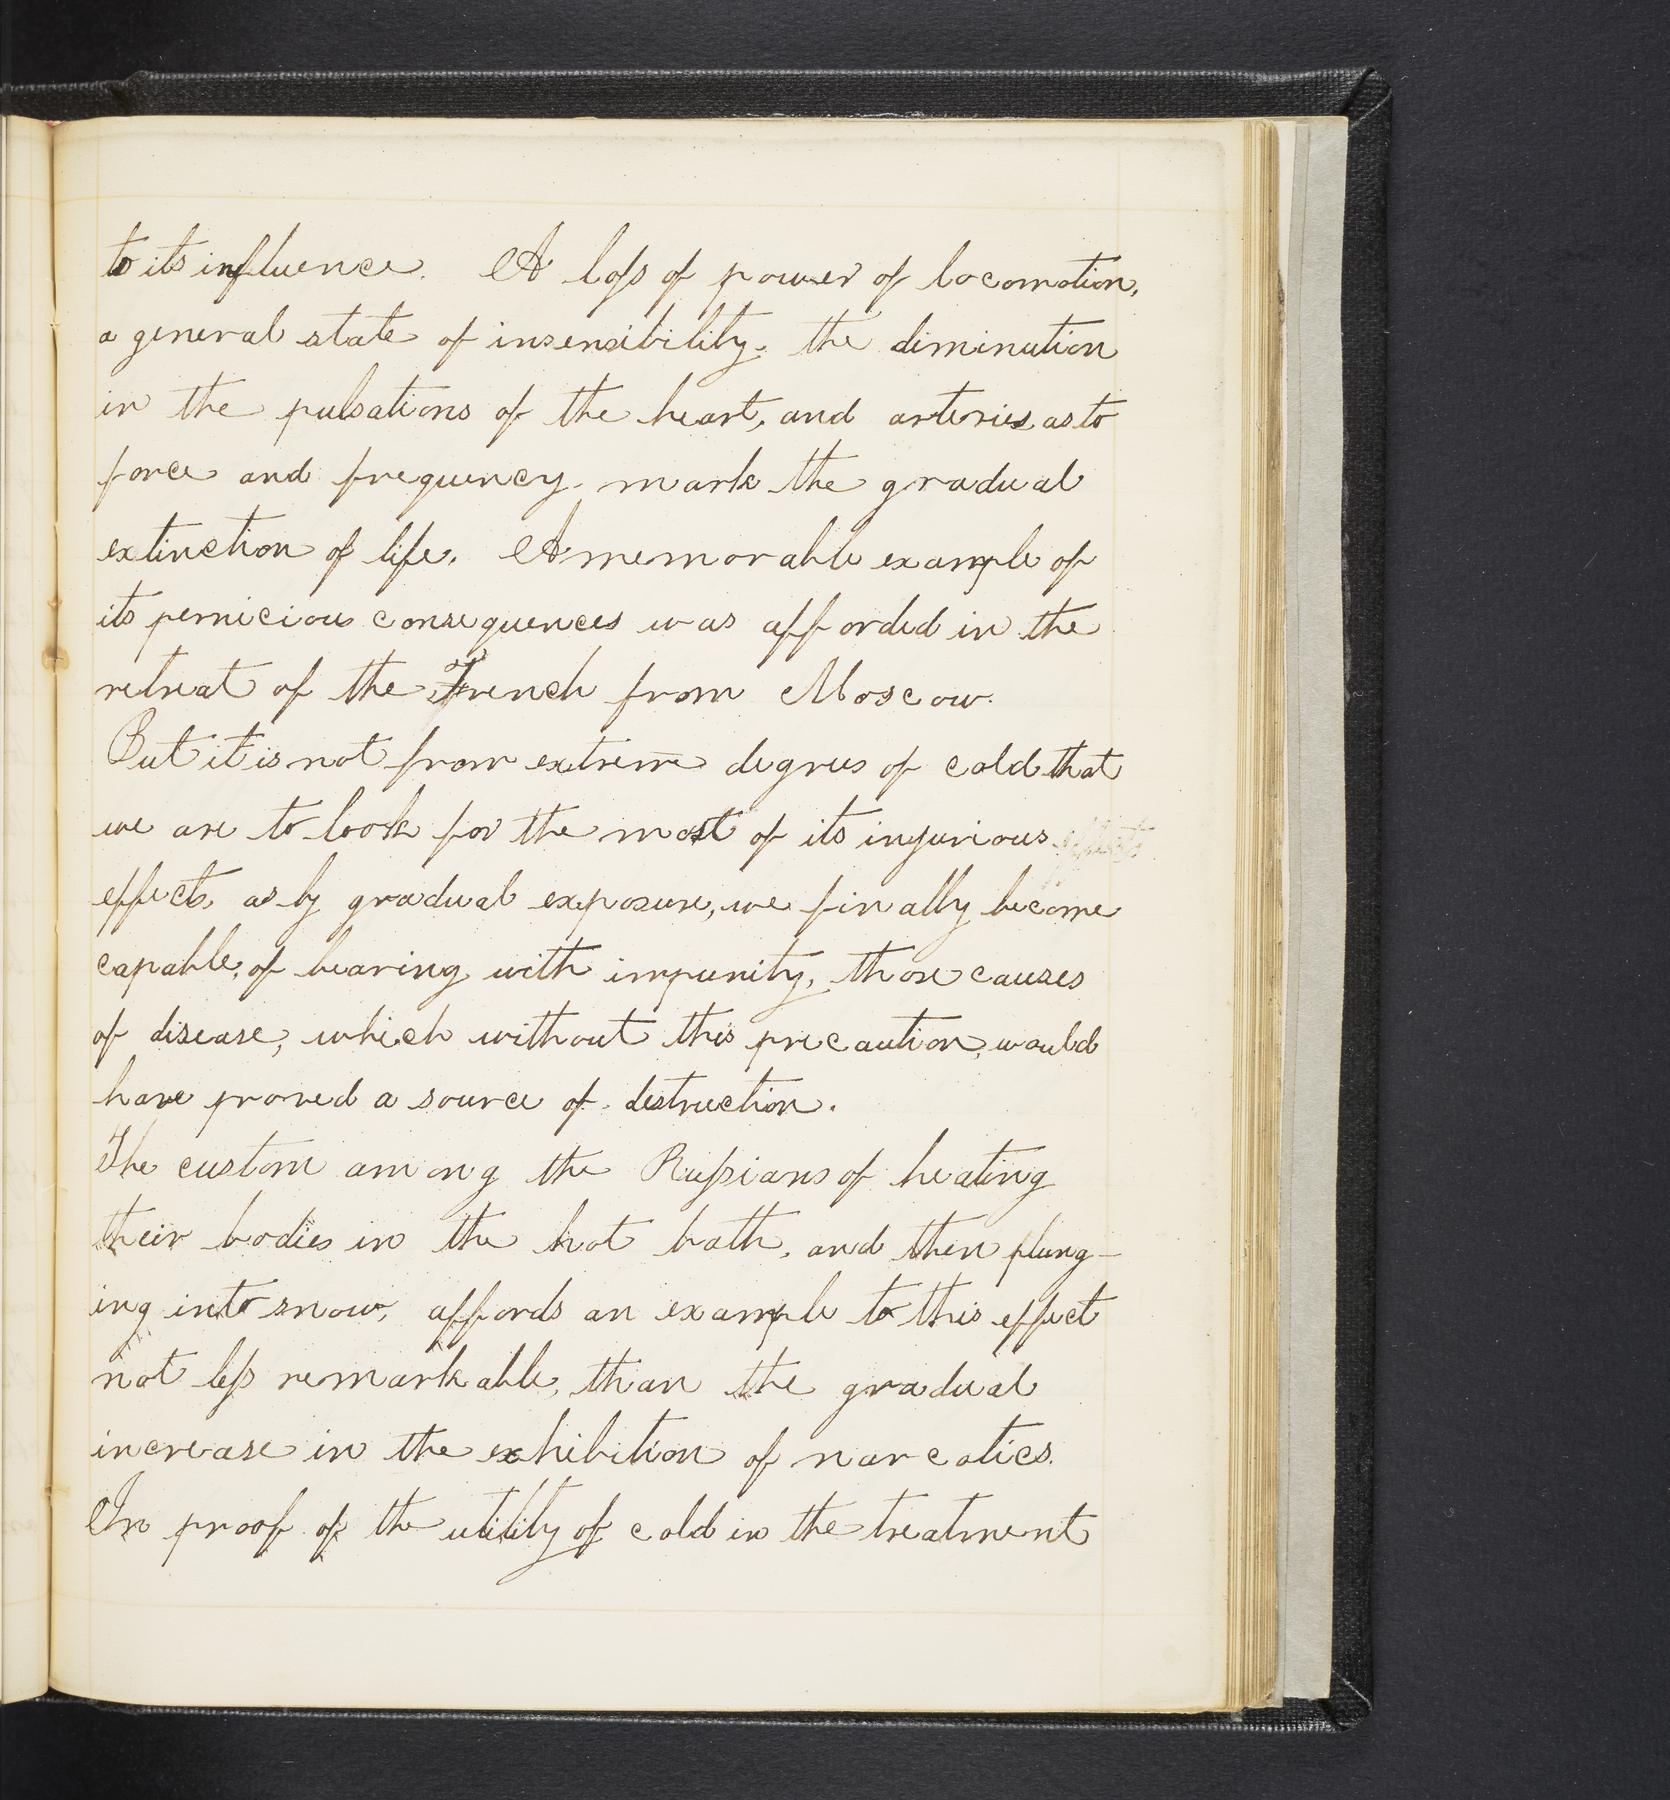 to its influence. A loss of power of locomotion,
a general state of insensibility, the diminution
in the pulsations of the heart, and arteries as to
force and frequency, mark the gradual
extinction of life. A memorable example of
its pernicious consequences was afforded in the
retreat of the French from Moscow.
But it is not from extreme degrees of cold that
we are to look for the most of its injurious
effects, as by gradual exposure, we finally become
capable, of bearing with impunity, those causes
of disease, which without this precaution, would
have proved a source of destruction.
The custom among the Russians of heating
their bodies in the hot bath, and then plung-
ing into snow, affords an example to this effect
not less remarkable, than the gradual
increase in the exhibition of narcotics.
In proof of the utility of cold in the treatment